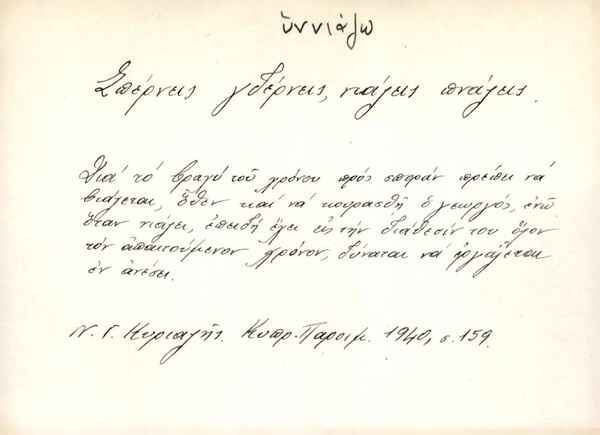 ὑννιάζω
Σπέρνεις γδέρνεις, νιάζεις πνάζεις.
Διά τό βραχύ τοῦ χρόνου πρός σποράν πρέπει νά
βιάζεται, ὅθεν καί νά κουρασθῇ ὁ γεωργός, ἐνῶ
ὅταν νιάζει, ἐπειδή ἔχει εἰς τήν διάθεσίν του ὅλον
τόν ἀπαιτούμενον χρόνον, δύναται νά ἐργάζεται
ἐν ἀνέσει.
Ν. Γ. Κυριαζῆς. Κυπρ. Παροιμ. 1940, σ. 159.